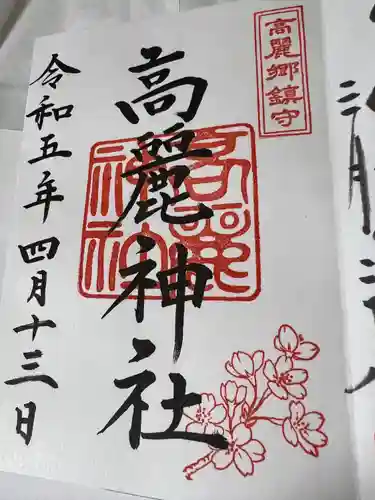 高麗郷鎮守
高麗神社
令和五年四月十三日
高麗神社
三月